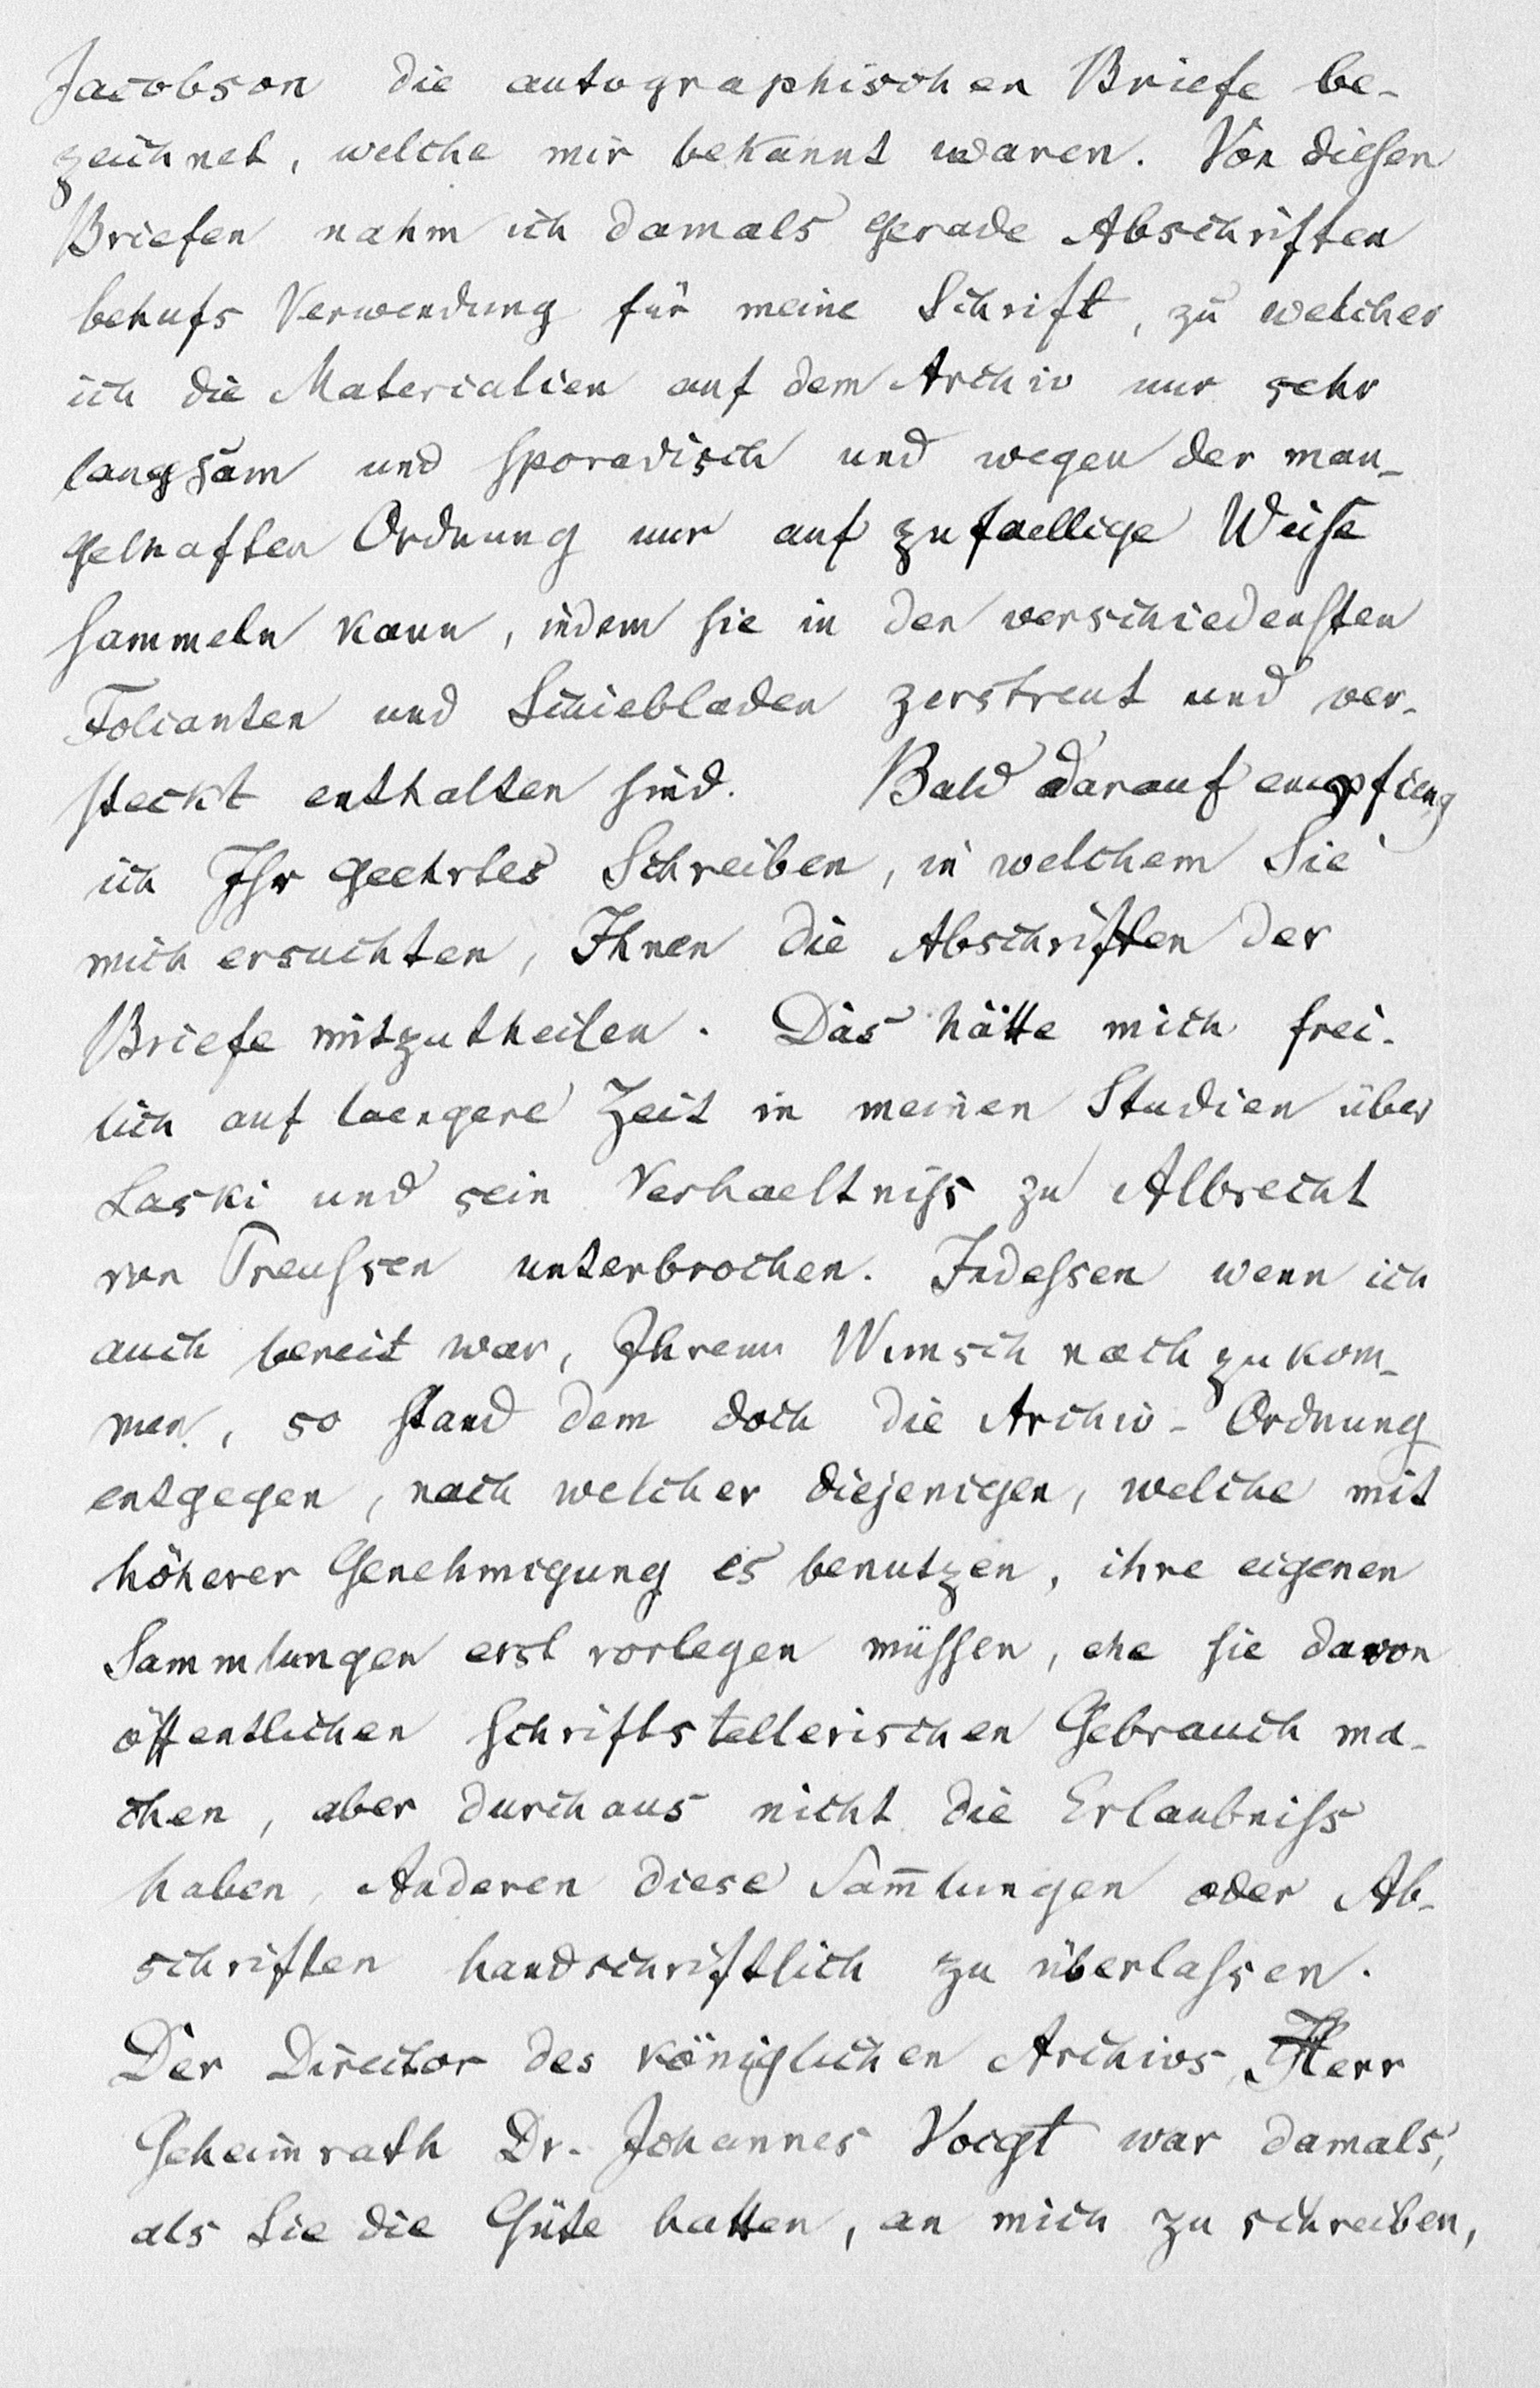 Jacobson die autographischen Briefe be-
zeichnet, welche mir bekannt waren. Von diesen
Briefen nahm ich damals gerade Abschriften
behufs Verwendung für meine Schrift, zu welcher
ich die Materialien auf dem Archiv nur sehr
langsam und sporadisch und wegen der man-
gelhaften Ordnung nur auf zufaellige Weise
sammeln kann, indem sie in den verschiedensten
Folianten und Schiebladen zerstreut und ver-
steckt enthalten sind. Bald darauf empfieng
ich Ihr geehrtes Schreiben, in welchem Sie
mich ersuchten, Ihnen die Abschriften der
Briefe mitzutheilen. Das hätte mich frei-
lich auf laengere Zeit in meinen Studien über
Laski und sein Verhaeltniss zu Albrecht
von Preussen unterbrochen. Indessen wenn ich
auch bereit war, Ihrem Wunsch nachzukom-
men, so stand dem doch die Archiv-Ordnung
entgegen, nach welcher diejenigen, welche mit
höherer Genehmigung es benutzen, ihre eigenen
Sammlungen erst vorlegen müssen, ehe sie davon
öffentlichen schriftstellerischen Gebrauch ma-
chen, aber durchaus nicht die Erlaubniss
haben, Anderen diese Sam̅lungen oder Ab-
schriften handschriftlich zu überlassen.
Der Director des königlichen Archivs, Herr
Geheimrath Dr. Johannes Voigt war damals,
als Sie die Güte hatten, an mich zu schreiben,